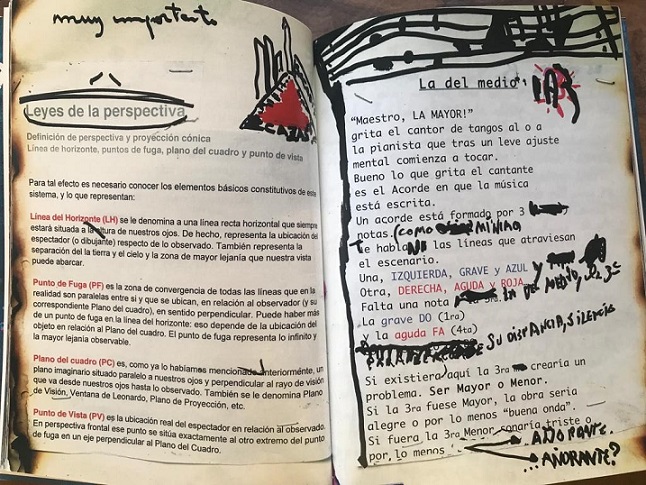 muy importante
Leyes de la perspectiva
Definición de perspectiva y proyección cónica
Línea de horizonte, puntos de fuga, plano del cuadro y punto de vista
Para tal efecto es necesario conocer los elementos básicos constitutivos de este
sistema, y lo que representan:
Línea del Horizonte (LH) se le denomina a una línea recta horizontal que siempre
estará situada a la altura de nuestros ojos. De hecho, representa la ubicación del
espectador (o dibujante) respecto de lo observado. También representa la
separación del tierra y el cielo y la mayor lejanía que nuestra vista
puede abarcar.
Punto de Fuga (PF) es la zona de convergencia de todas las líneas que en la
realidad son paralelas entre sí y que se ubican, en relación al observador (y su
correspondiente Plano del cuadro), en sentido perpendicular. Puede haber más
de un punto de fuga en la línea del horizonte: eso depende de la ubicación del
objeto en relación al Plano del cuadro. El punto de fuga representa lo infinito y
la mayor lejanía observable.
Plano del cuadro (PC) es, como ya lo habíamos mencionado anteriormente, un
plano imaginario situado paralelo a nuestros ojos y perpendicular al rayo de visión
que va desde nuestros ojos hasta lo observado. También se le denomina Plano
de Visión, Ventana de Leonardo, Plano de Proyección, etc.
Punto de Vista (PV) es la ubicación real del espectador en relación al observado.
En perspectiva frontal ese punto se sitúa exactamente al otro extremo del punto
de fuga en un eje perpendicular al Plano del Cuadro.
La del medio
"Maestro, LA MAYOR!"
grita el cantor de tangos al o a
la pianista que tras un leve ajuste
mental comienza a tocar.
Bueno lo que grita el cantante
es el Acorde en que la música
está escrita.
Un acorde está formado por 3
notas. (COMO MINIMO)
Te habla las líneas que atraviesan
el escenario.
Una, IZQUIERDA, GRAVE y AZUL y
Otra, DERECHA, AGUDA y ROJA.
Falta una nota LA DEL MEDIO, LA 3ª
La grave DO (1ra)
y la aguda FA (4ta)
SU DISTANCIA, SILENCIA
Si existiera, aquí la 3ra crearía un
problema. Ser Mayor o Menor.
Si la 3ra fuese Mayor, la obra sería
alegre o por lo menos "buena onda".
Si fuera la 3ra Menor sonaría triste o
por lo menos AÑORANTE.
...AÑORANTE?